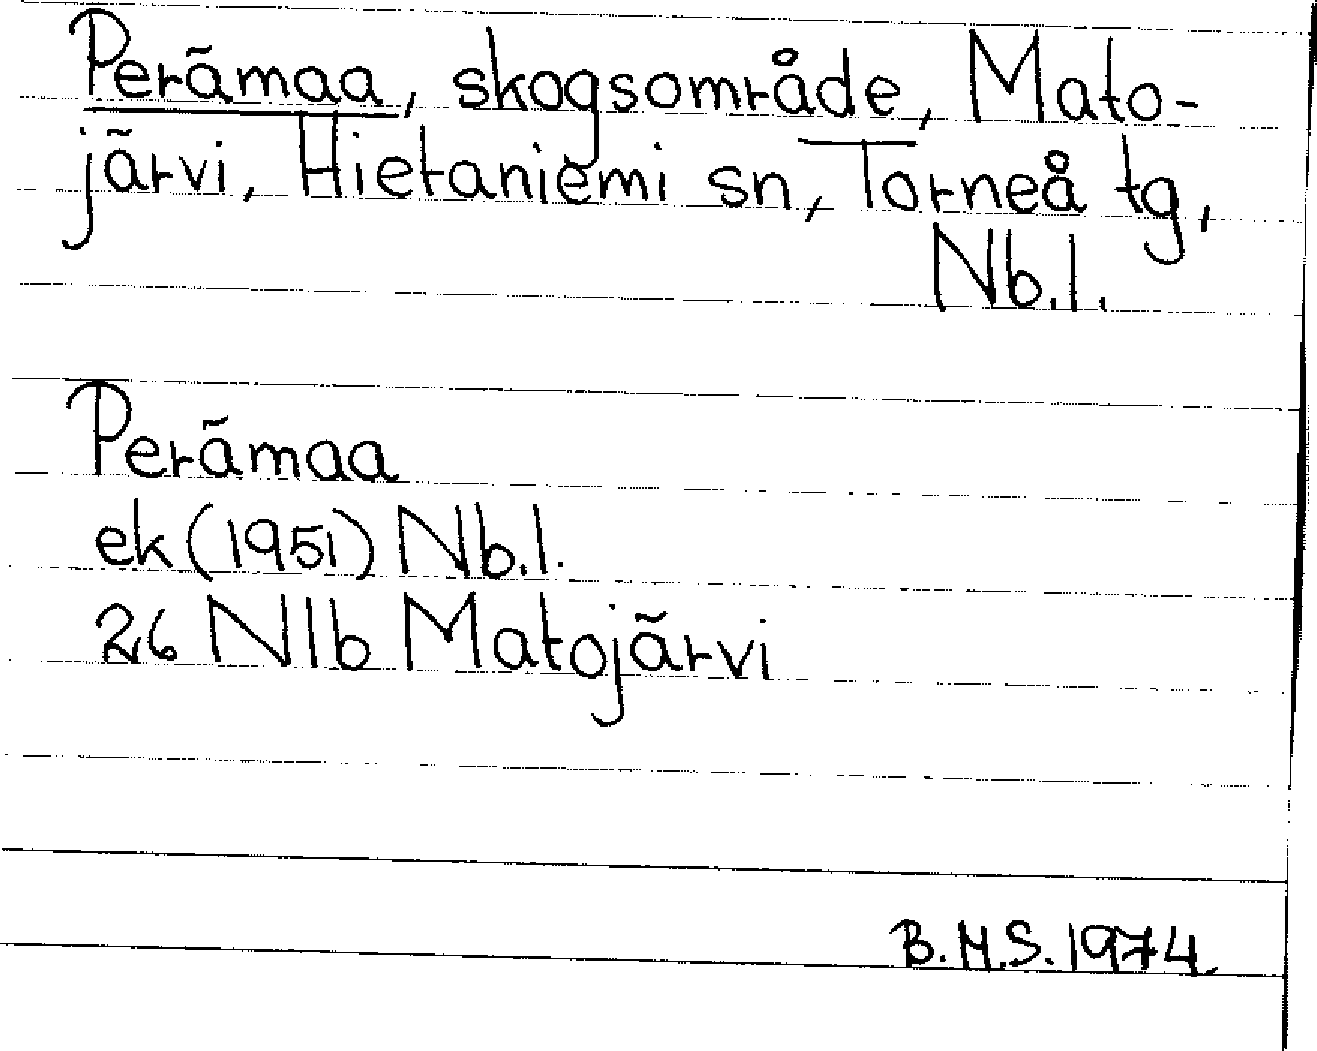 Perämaa, skogsområde, Mato-
järvi, Hietaniemi sn, Torneå tg,
Nb.l.
Perämaa
ek (1951) Nb.l.
26 N1b Matojärvi
B.M.S. 1974